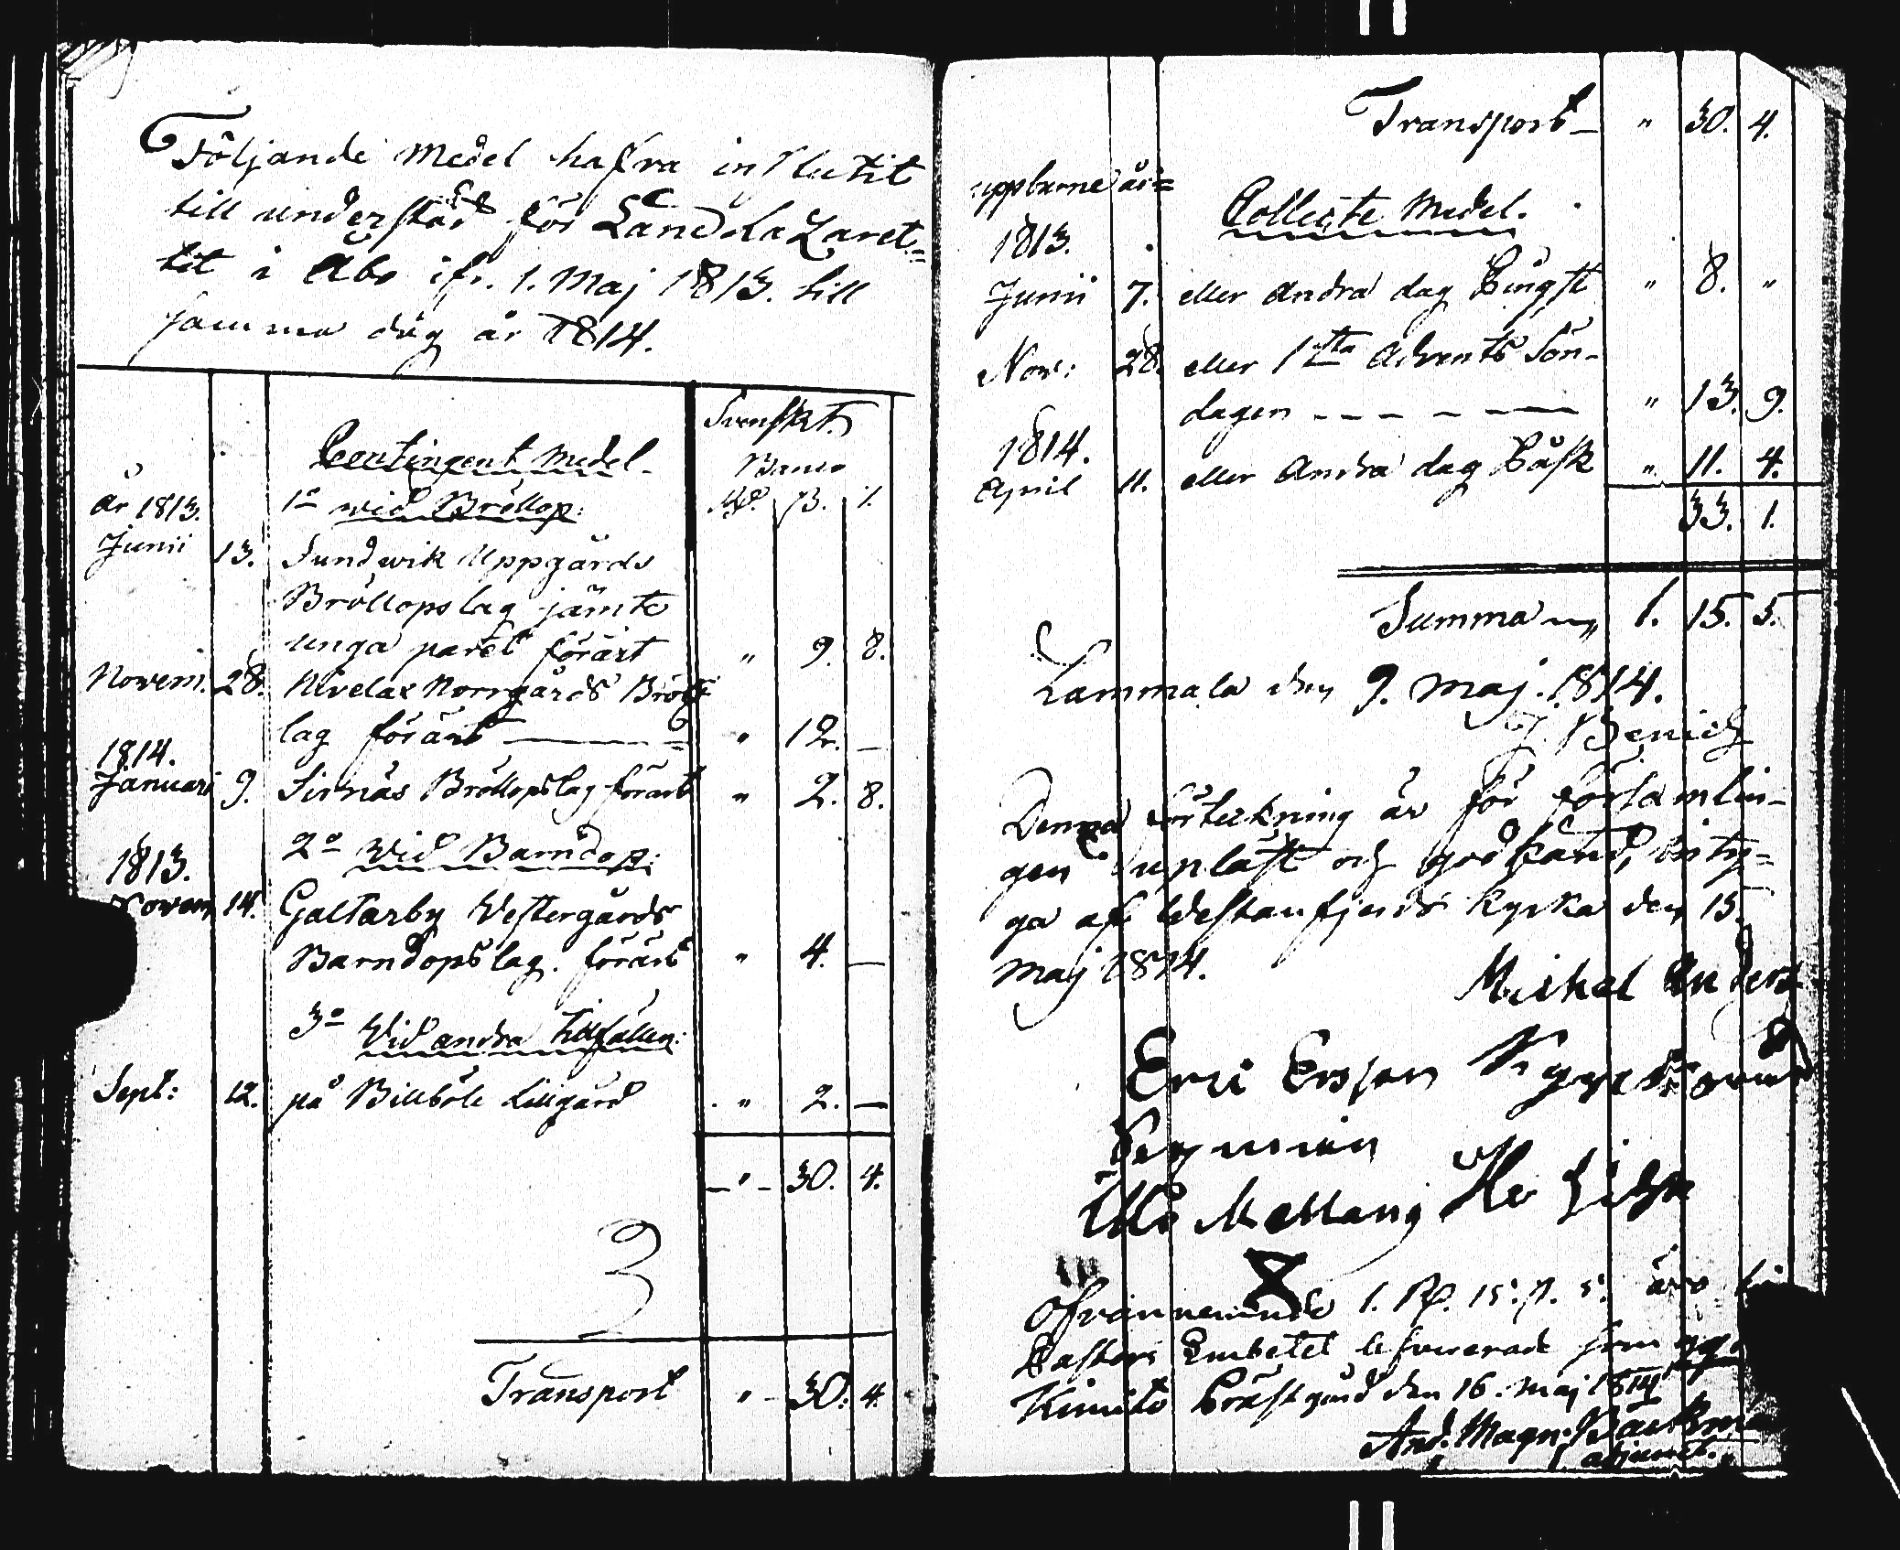 Följande medel hafva influtit
till understöd för Länd La Zaret=
tet i Åbo ifr. 1. Maj 1813. till
samma dag år 1814.
Svenskt.
Contingent Medel.
Banco
år 1813. 1º wid Bröllop: Rd. ß. r.
Junii 13. Sundwik Uppgårds
Bröllopslag jämte
unga paret förärt " 9. 8.
Novem. 28. Nivelax Norrgårds Bröll
lag förärt " 12. —
1814.
Januari 9. Sirnäs Bröllopslag förärt " 2. 8.
2º wid Barndop:
1813.
Novem 14. Galtarby Westergårds
Barndopslag. förärt " 4. —
3º Wid andra tillfällen:
Sept: 12. på Billböle Lillgård " 2. —
— " — 30. 4.
3
Transport " — 30. 4.
Transport — " 30. 4.
uppburne är=
Collecte Medel.
1813.
Junii 7. eller andra dag Pingst " 8. "
Nov: 28. eller 1sta Advents Sön-
dagen — — — — — " 13. 9.
1814.
April 11. eller Andra dag Påsk " 11. 4.
33. 1.
Summa " 1. 15. 5.
Lammala den 9. maj. 1814.
J. Benich
Denna förtekning är för församlin-
gen upläst och godkänd, inty=
ga af Westanfjerds kyrka den 15.
maj 1814.
Michel Anders
Eric Ersson
Ofvannemnde 1. Rd. 15. ß. 5. äro
Pastors Embetet lefvererade som
Kimito Prästgård den 16. maj 1814
And. Magn. Backman
adjunct.